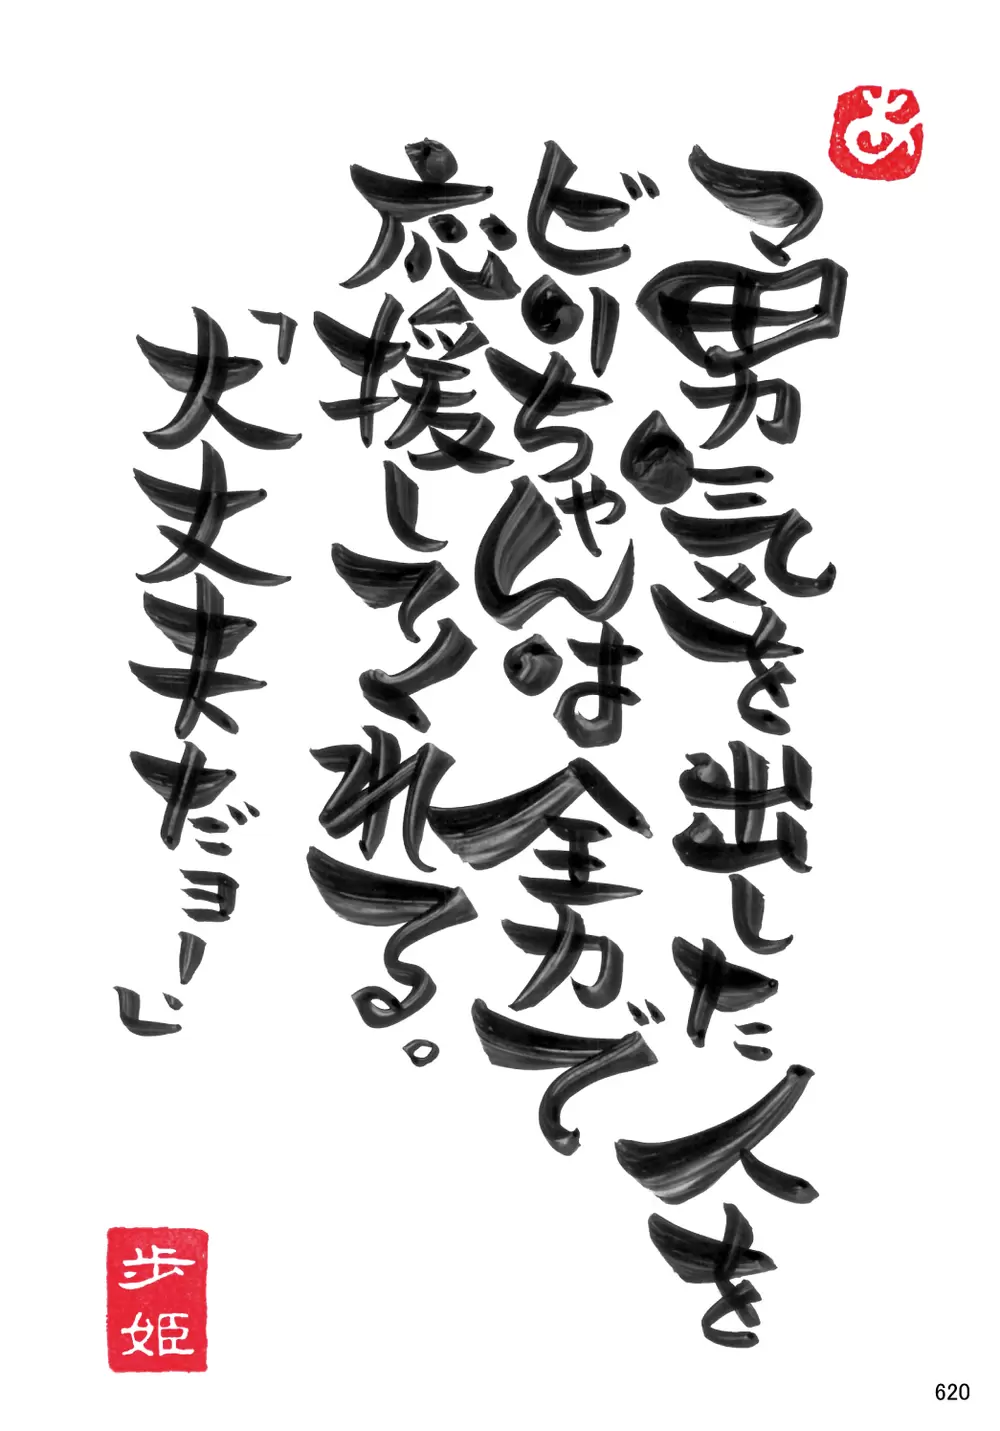 あ
勇気を出した人を
ピリちゃんは全力で
応援してくれる。
「大丈夫だョー」
歩姫
620